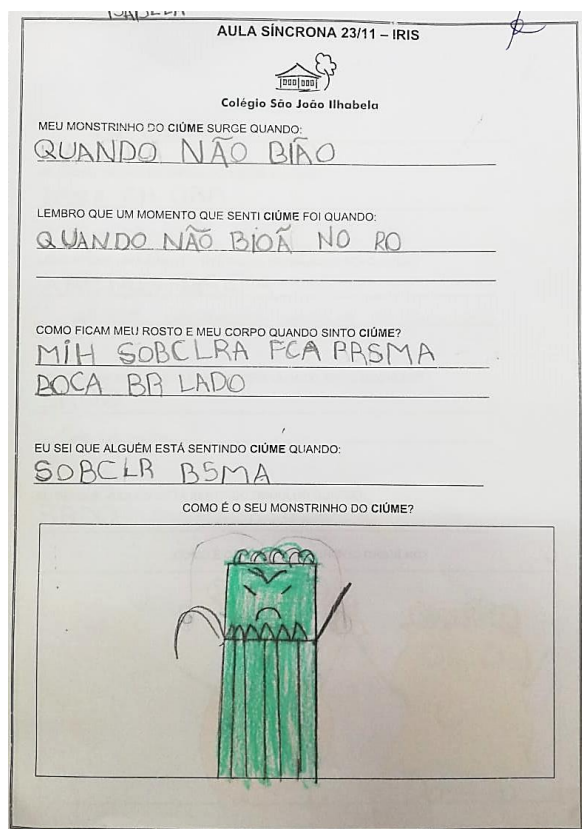 ISABELLA
AULA SÍNCRONA 23/11 – IRIS
Colégio São João Ilhabela
MEU MONSTRINHO DO CIÚME SURGE QUANDO:
QUANDO NÃO BIÃO
LEMBRO QUE UM MOMENTO QUE SENTI CIÚME FOI QUANDO:
QUANDO NÃO BIOÃ NO RO
COMO FICAM MEU ROSTO E MEU CORPO QUANDO SINTO CIÚME?
MIH SOBCLRA FCA PRSMA
BOCA BR LADO
EU SEI QUE ALGUÉM ESTÁ SENTINDO CIÚME QUANDO:
SOBCLR BSMA
COMO É O SEU MONSTRINHO DO CIÚME?